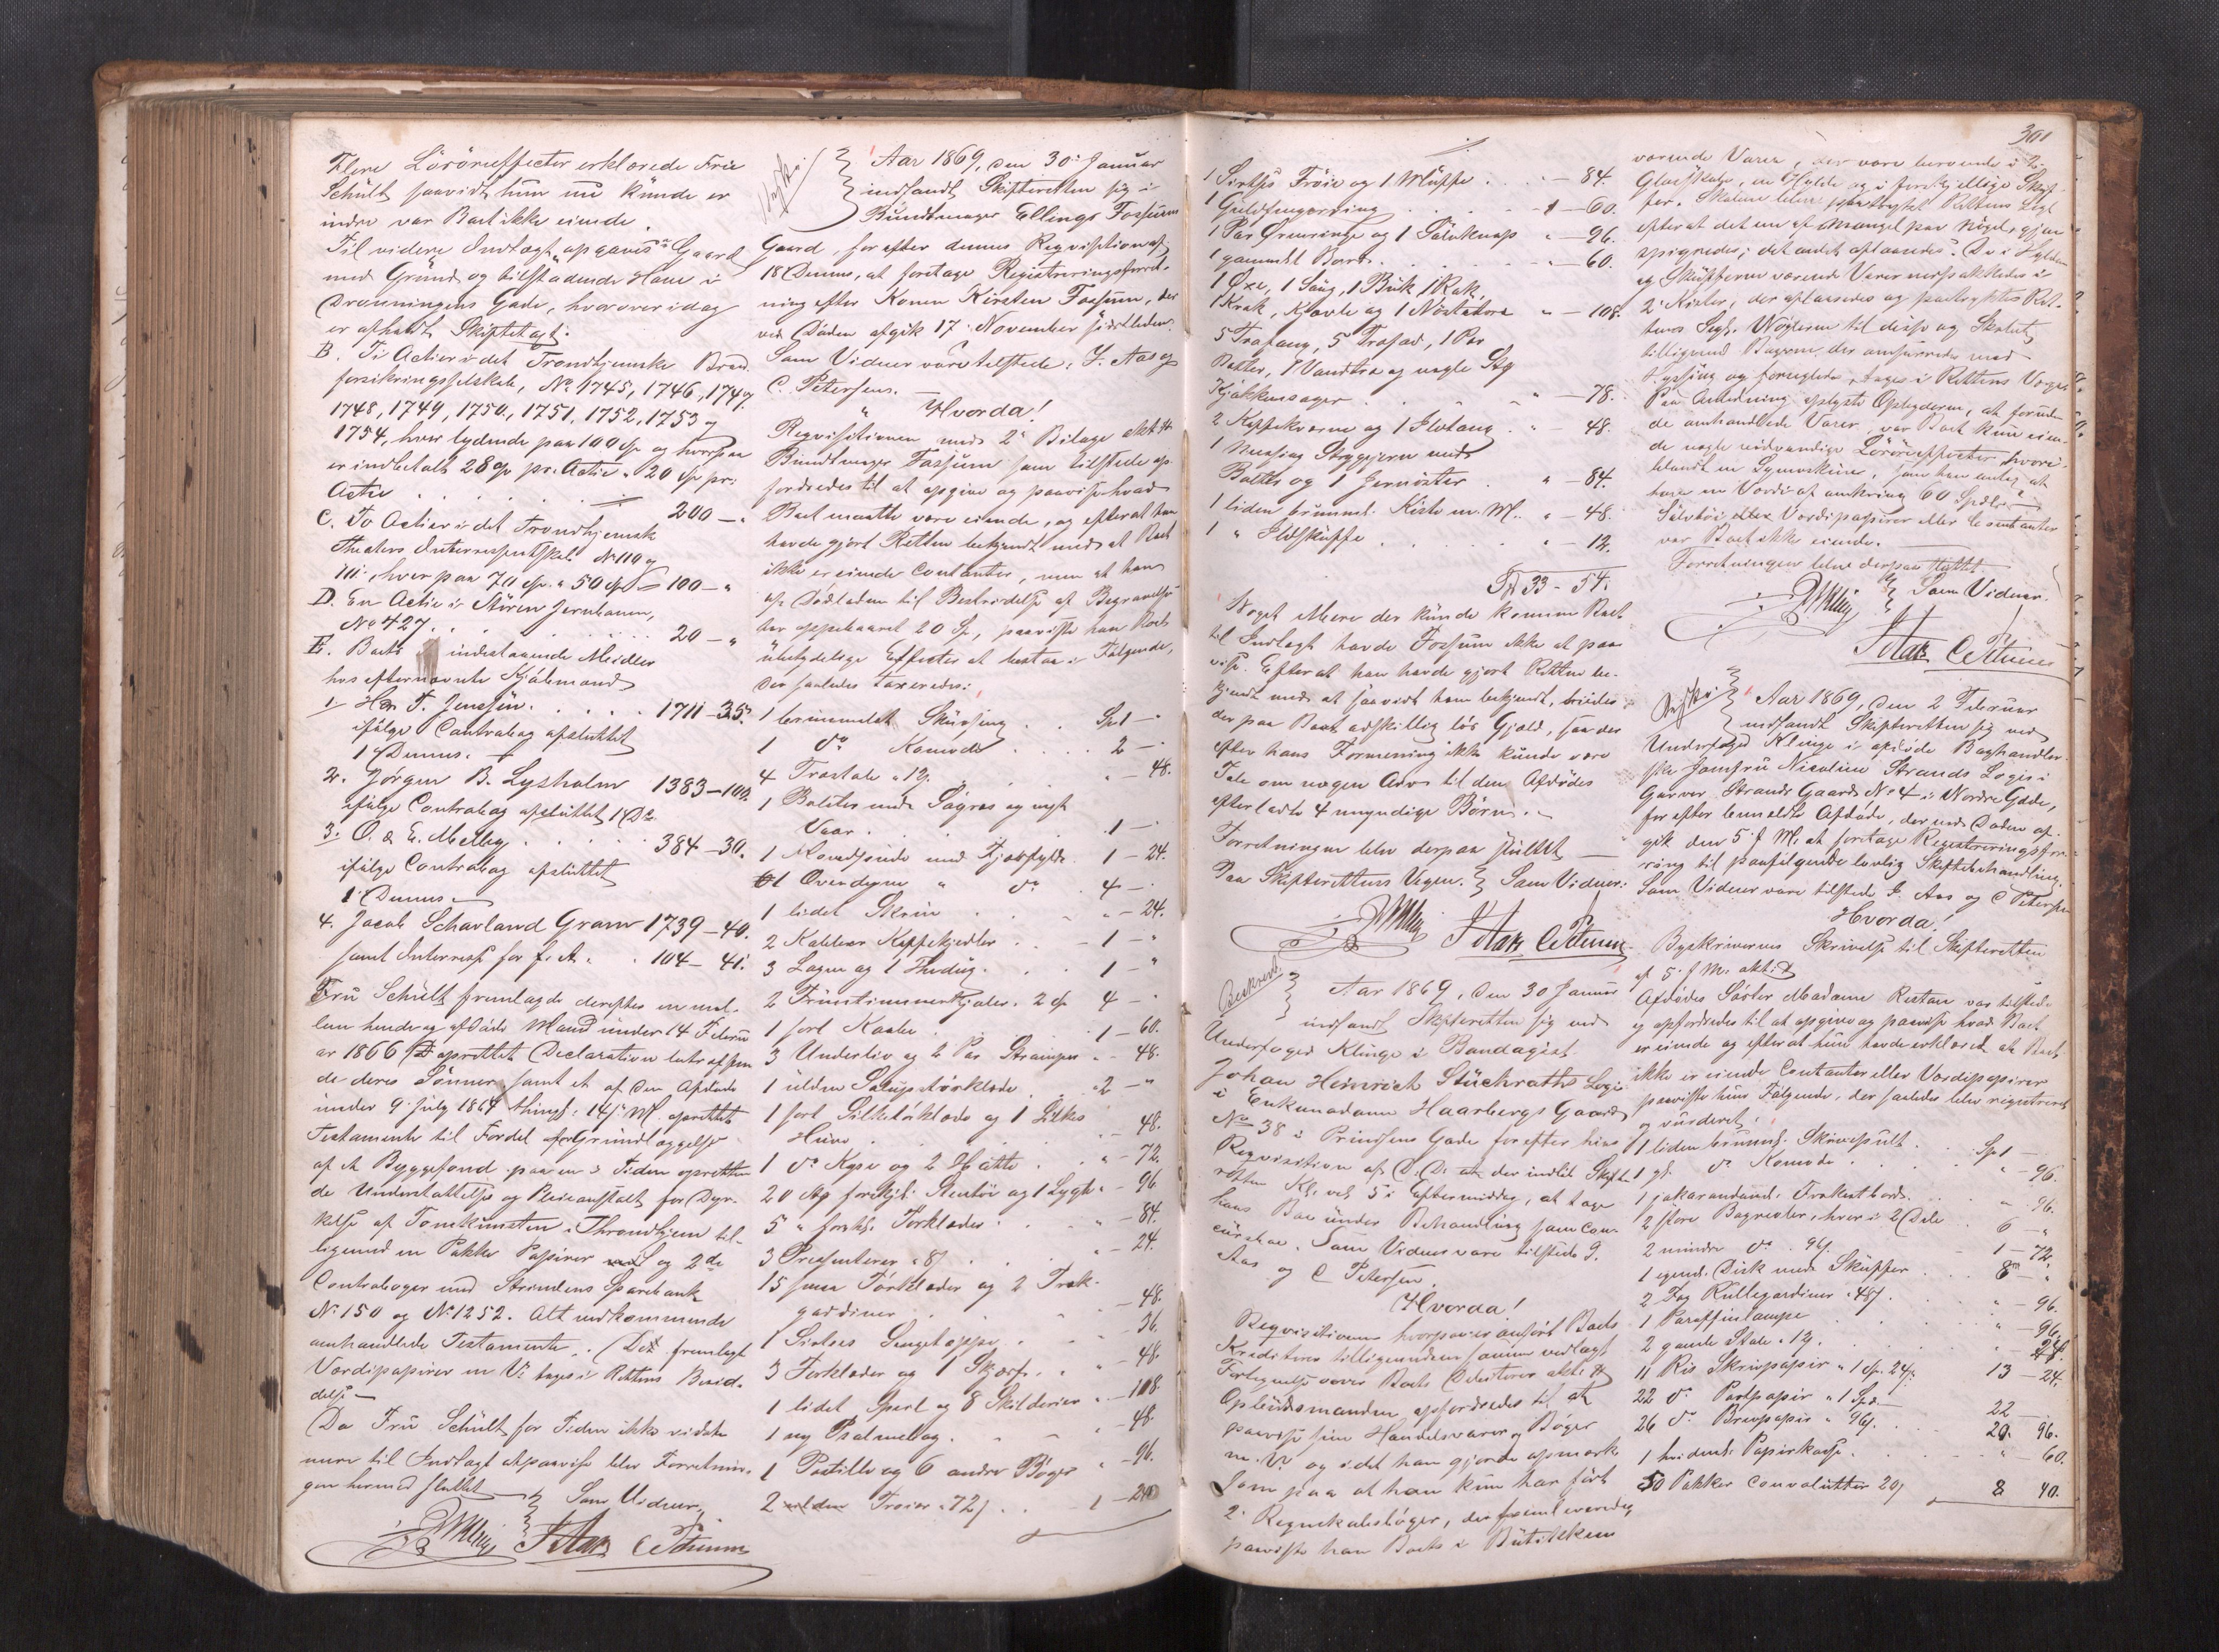 Flere Lösöreeffecter erklærede Frue
Schült saavidt hun nu kunde er
indre var Boet ikke eiende.
Til videre Indtægt opgaves: Gaard
med Grund og tilstødende Have i
Dronningens Gade, hvorover idag
er afholdt Skiftetaxt.
B. Ti Actier i det Trondhjemske Brand
forsikringsselskab, No 1745, 1746, 1747,
1748, 1749, 1750, 1751, 1752, 1753 og
1754, hver lydende paa 100 Sp og hvorpaa
er indbetalt 28 Sp pr. Actie a 20 Sp pr.
Actie . . . 200 — "
C. To Actier i det Trondhjemsk
Theaters Interessentskab No 110 og
111, hver paa 70 Sp. a 50 Sp — 100 — "
D. En Actie i Stören Jernbanen,
No 427. . . . 20 — "
E. Boets indestaaende Midler
hos efternævnte Kjöbmænd
1. Hans F. Jenssen . . . 1711 — 35.
ifølge Contrabog afsluttet
1 Dennes.
2. Jørgen B. Lysholm 1383 — 100.
ifølge Contrabog afsluttet 1 Ds.
3. O. & E. Mellbye . . . 384 — 30.
ifølge Contrabog afsluttet
1 Dennes
4. Jacob Schavland Gram 1739 — 40.
samt Interesse for f. A. . . 104 — 41.
Fru Schült fremlagde derefter en mel-
lem hende og afdöde Mand under 14 Februar
ar 1866 oprettet Declaration
de deres Sönner samt et af den Afdöde
under 9 July 1864 thingl: 14 s. M. oprettet
Testamente til Fordel for Grundlæggelse
af et Byggefond paa en i Tiden oprettende
de Understøttelse og Pleieanstalt for Dyr-
kelse af Tonekunsten i Throndhjem til-
ligemed en Pakke Papirer og 2de
Contraboger med Strindens Sparebank
No 150 og No 1252. Alt vedkommende
omhandlede Testamente. Det fremlagt
Værdipapirer m. V. toges i Rettens Besid-
delse —
Da Fru Schült for Tiden ikke vidste
mere til Indtægt at paavise blev Forretnin-
gen hermed sluttet
Som Vidner,
J Aas C Petersen

Aar 1869, den 30 Januar
indfandt Skifteretten sig i
Bundtmager Ellings Fossums
Gaard, for efter dennes Reqvisition af
18 Dennes, at foretage Registreringsforret-
ning efter Konen Kirsten Fossum, der
ved Döden afgik 17 November sidstleden.
Som Vidner vare tilstede: J. Aas og
C. Petersen.
Hvorda!
Reqvisitionen med 2 Bilage akt:
Bundtmager Fossum som tilstede op-
fordredes til at opgive og paavise hvad
Boet maatte være eiende, og efterat han
havde gjort Retten bekjendt med at Boet
ikke er eiende Contanter, men at han
af Dödboden til Bestridelse af Begravelse
har oppebaaret 20 Sp, paaviste han Boets
übetydelige Effecter at bestaa i Følgende,
der saaledes taxeredes:
1 brunmalet Skuvseng . . Sp 1 — "
1 do Komode . . . 2 — "
4 Træstole a 12 . . " — 48.
1 Bolster med Sögras og nyt
Vaar . . . 1 —
1 Hovedpude med Fjærfyld . 1 — 24.
1 Overdyne " do . 4 — "
1 lidet Skrin . . . " — 24.
2 Kobber Kaffekjedler . . — 1 — "
3 Lagen og 1 Theedug . . . 1 — "
2 Fruntimmerkjoler a 2 Sp 4 — "
1 sort Kaabe . . . 1 — 60.
3 Underliv og 2 Par Strømper " — 48.
1 ulden Satyrstörklæde . . 2 — "
1 sort Silketörklæde og 1 Silkes
Huve . . . — 48.
1 do Kyse og 2 Hatte . . " — 72.
20 Stp forskjl: Stentöi og 1 Lygte " — 96
5 " forskj. Torklæder . . — 84.
3 Presenterer a 8 . . . — 24.
15 smaa Törklæder og 2 Træk-
gardiner . . . — 48.
1 Sirtses Sengeteppe . . . — 36.
3 Forklæder og 1 Skjærf. . " — 48.
1 lidet Speil og 8 Skilderier " — 108.
1 ny Psalmebog . . . " — 48
1 Postille og 6 andre Böger " — 96.
2 Troier a 72 . . 1 — 20

301
1 Sirtses Tröie og 1 Muffe . . . — 84.
1 Guldfingerring . . . 1 — 60.
1 Par Örenringe og 1 Sölvknap " — 96.
1 gammelt Bord . . . — 60.
1 Øxe, 1 Saug, 1 Buk, 1 Rok,
1 Krak, Kjævle og 1 Vaskebord " — 108.
5 Træfang, 5 Træfad, 1 Par
Bötter, 1 Vandtræ og nogle Stp
Kjøkkensager . . . " — 78.
2 Kaffekværne og 1 Ildtang . " — 48.
1 Messing Strygejern med
Bolter og 1 Jernrister . " — 84.
1 liden brunmal. Kiste m. M. . " — 48.
1 " Ildskuffe . . . " — 12.
Sp 33 — 54.
Noget Mere der kunde komme Boet
til Indtægt havde Fossum ikke at paa-
vise. Efterat han havde gjort Retten be-
kjendt med at saavidt ham bekjendt, hviler
der paa Boet adskillig lös Gjæld, saa der
efter hans Formening ikke kunde være
Tale om nogen Arv til den Afdödes
efterladte 4 umyndige Børn. —
Forretningen blev derpaa sluttet —
Paa Skifterettens Vegne. Som Vidner:
J Aas C Petersen
Beskreven
Aar 1869, den 30 Januar
indfandt Skifteretten sig ved
Underfoged Klinge i Bandagist
Johan Heinrich Stüchraths Logi
i Enkemadame Haarbergs Gaard
No 38 i Prindsens Gade for efter hans
Reqvisition af D. D. der indløb Skifte-
retten Kl. vel 5 i Eftermiddag, at tage
hans Bo under Behandling som Con-
cursbo. Som Vidner vare tilstede J.
Aas og C Petersen.
Hvorda!
Reqvisitionen hvorpaa er anført Boets
Kreditorer tilligemed en samme vedlagt
Fortegnelse over Boets Debitorer akt:
Opbudsmanden opfordredes til at
paavise sine Handelsvarer og Böger
m. V. og idet han gjorde opmærk-
som paa at han kun har fört
2 Regnskabsböger, der fremleveredes,
paaviste han Boets i Butikken

værende Varer, der vare beroende i 2
Glasskabe, en Hylde og i forskjellige Skuf-
fer. Skabene blev paatrykt Rettens Segl
efterat det ene af Mangel paa Nögel, gjen
spigredes; det andet aflaasedes. De i Hylden
og Skufferne værende Varer nedpakkedes i
2 Kister, der aflaasedes og paatryktes Ret-
tens Segl. Nöglerne til disse og Skabet
tilligemed Bögerne der omsurredes med
Hyssing og forsegledes, toges i Rettens Værge
Paa Anledning oplyste Opbyderen, at foruden
de omhandlede Varer, var Boet kun eien-
de nogle nödvendige Lösöreeffecter hvori-
blandt en Symaskine, som han antog at
have en Værdi af omkring 60 Spdlr.
Sölvtöi eller Værdipapirer eller Contanter
var Boet ikke eiende. —
Forretningen blev derpaa sluttet —
Som Vidner.
J Aas C Petersen
Aar 1869, den 2 Februar
indfandt Skifteretten sig ved
Underfoged Klinge i afdöde Boghandler-
ske Jomfru Nicoline Strands Logis i
Garver Strands Gaard No 4 i Nordre Gade,
for efter bemeldte Afdöde, der ved Döden af-
gik den 5 f. M. at foretage Registreringsfor-
ning til paafølgende lovlig Skiftebehandling.
Som Vidner vare tilstede J. Aas og C Petersen
Hvorda!
Byskriverens Skrivelse til Skifteretten
af 5 f. M. akt:
Afdödes Söster Madame Restan var tilstede
og opfordredes til at opgive og paavise hvad Boet
er eiende og efterat hun havde erklæret at Boet
ikke er eiende Contanter eller Værdipapirer
paaviste hun Følgende, der saaledes blev registreret
og vurderet:
1 liden brunmal. Skrivepult . . Sp 1 —
1 gl. do Komode . . . " — 96.
1 jakarandamal. Trækistbord . . " — 96.
2 store Bogreoler, hver i 2 Dele . 6 — "
2 mindre do . 96 . . — 1 — 72.
1 egemal. Disk med Skuffer . . 8 — "
2 Fag Rullegardiner a 48 . . " — 96.
1 Paraffinlampe . . . " — 96.
2 gamle Stole a 12 . . . " — 24
11 Ris Skrivpapir a 1 Sp. 24 13 — 24.
22 do Postpapir a 1 Spd. — 22 — .
26 do Brevpapir a 96 . . 20. 96.
1 hvidmal: Papirkasse . . . " — 60.
50 Pakker Convolutter 20 8 40.